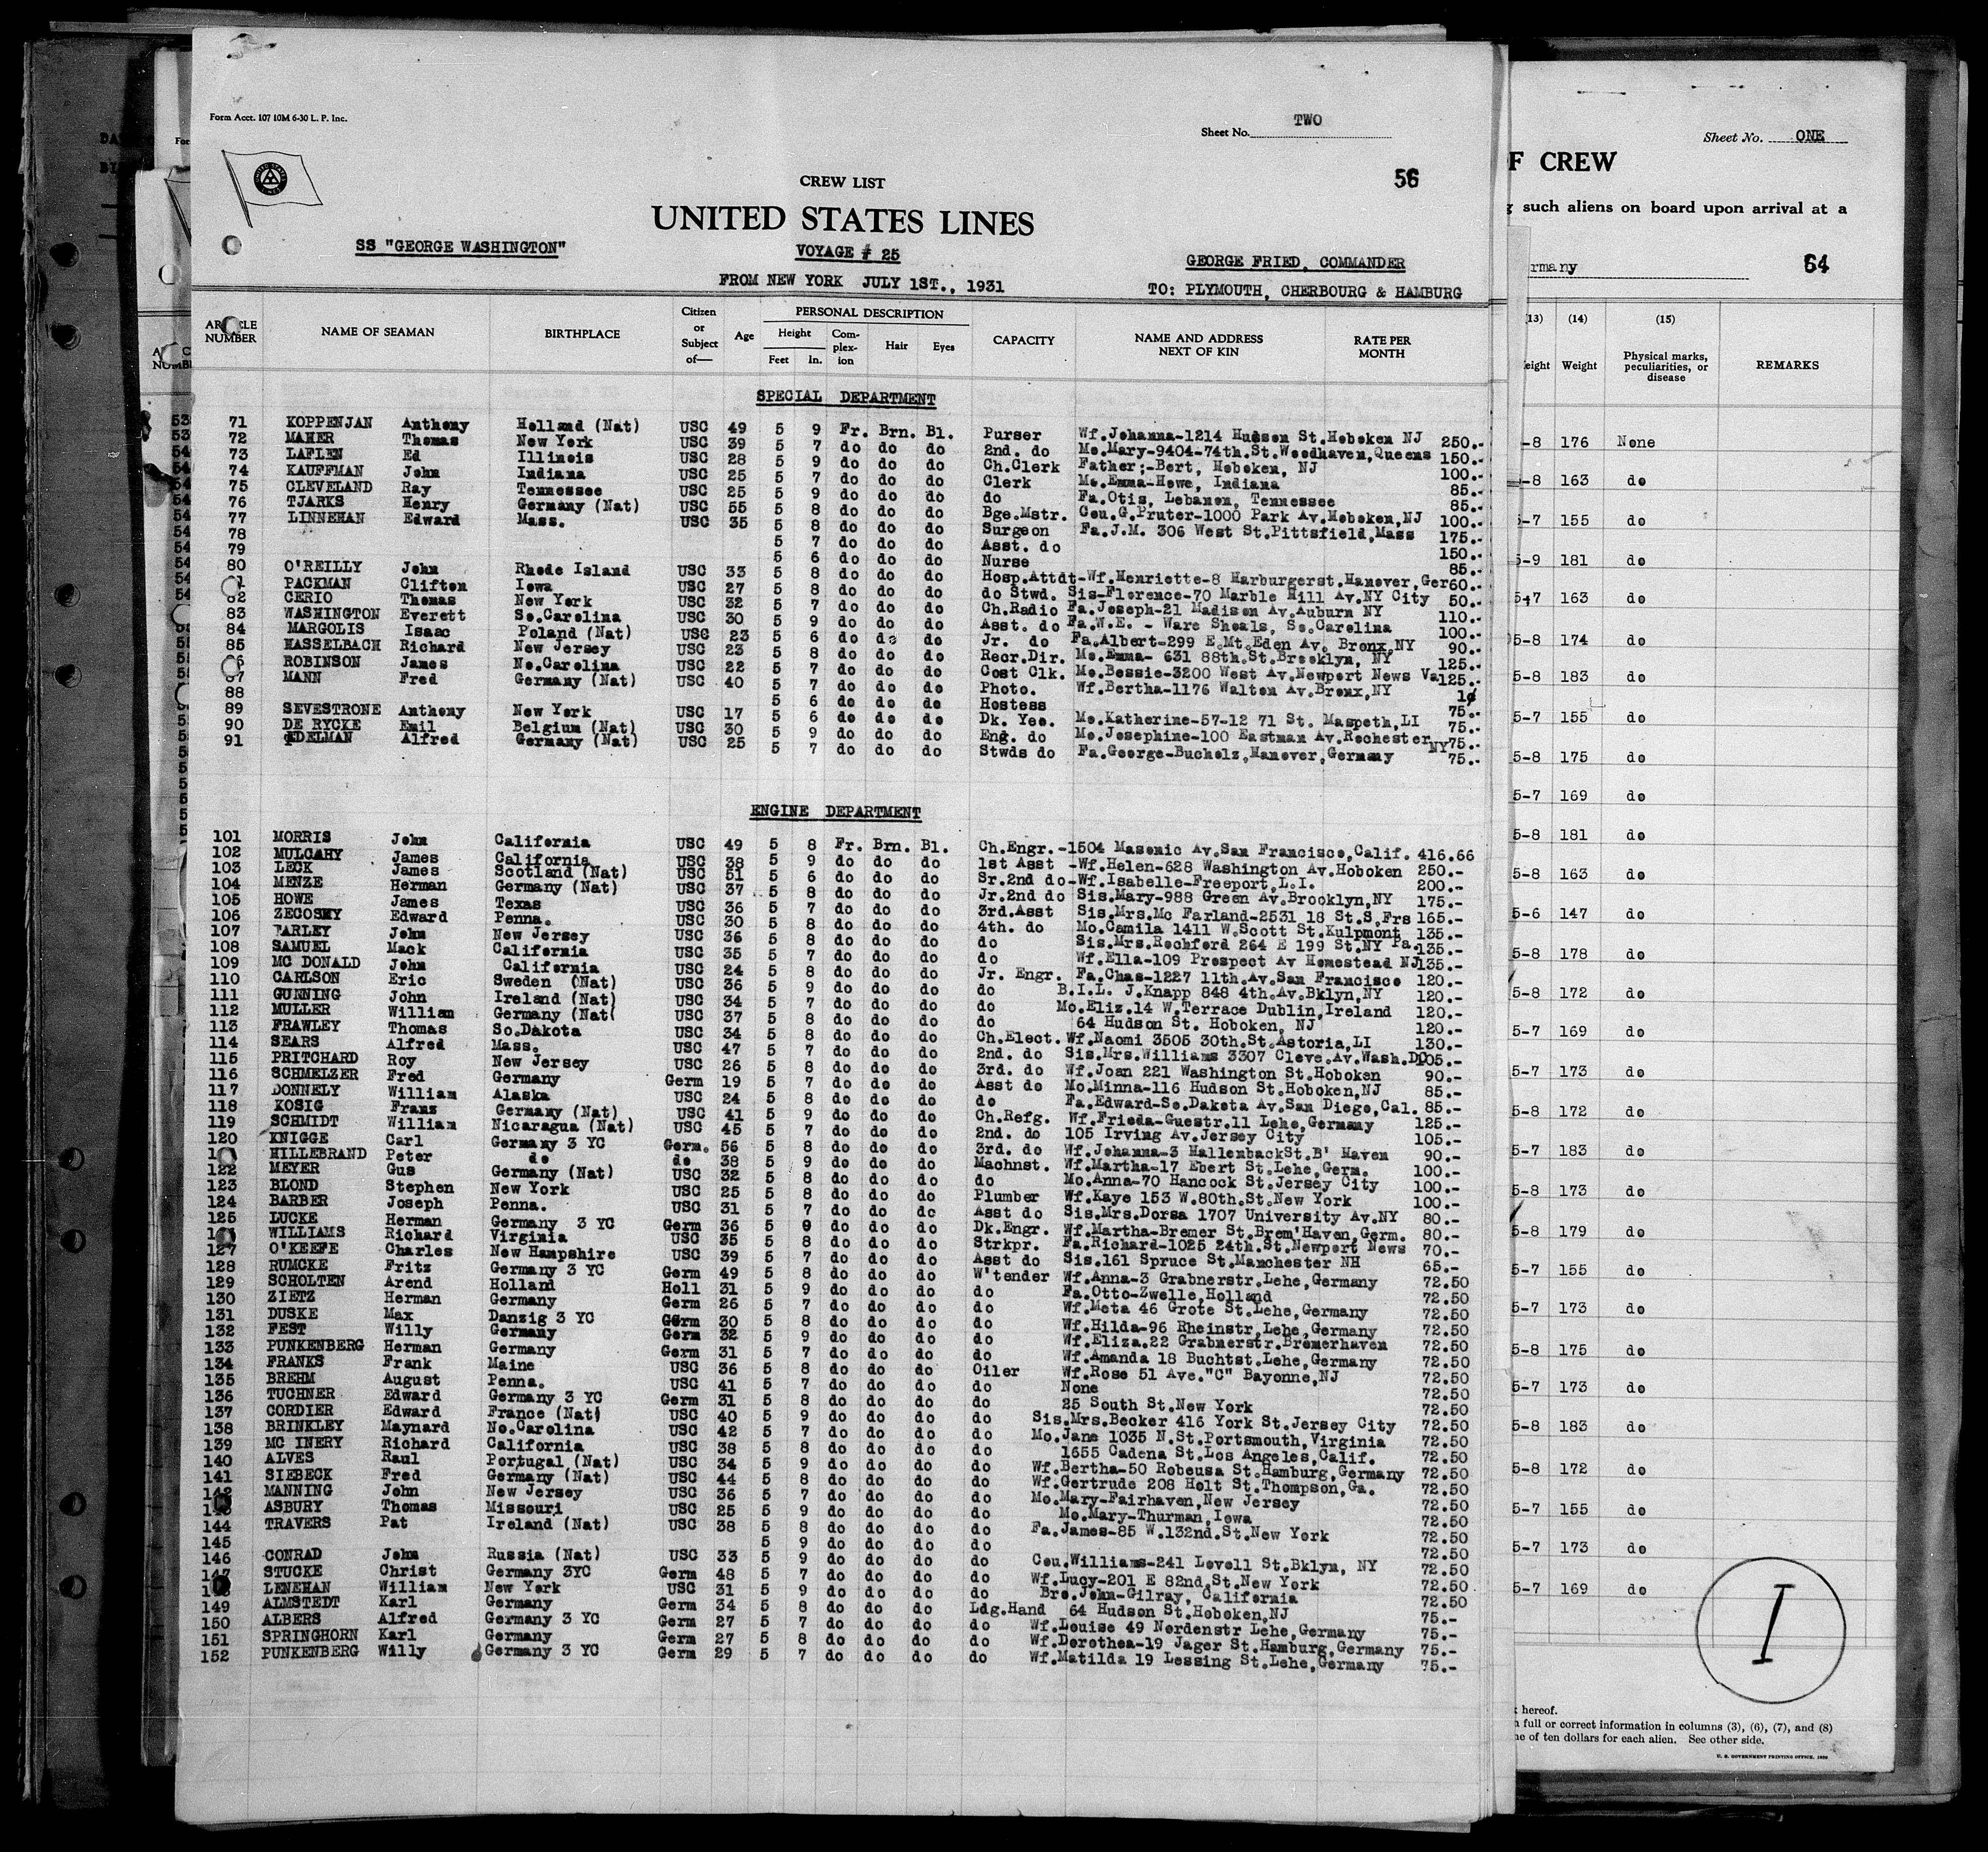 Form Acct. 107 10M 6-30 L. P. Inc.
Sheet No. TWO
56
CREW LIST
UNITED STATES LINES
SS "GEORGE WASHINGTON"
VOYAGE # 25
GEORGE FRIED, COMMANDER
FROM NEW YORK JULY 1ST., 1931
TO: PLYMOUTH, CHERBOURG & HAMBURG
ARTICLE NUMBER NAME OF SEAMAN BIRTHPLACE Citizen or Subject of— Age PERSONAL DESCRIPTION Height Feet In. Complexion Hair Eyes CAPACITY NAME AND ADDRESS NEXT OF KIN RATE PER MONTH
SPECIAL DEPARTMENT
71 KOPPENJAN Anthony Holland (Nat) USC 49 5 9 Fr. Brn. Bl. Purser Wf.Johanna-1214 Hudson St.Hoboken NJ 250.-
72 MAHER Thomas New York USC 39 5 7 do do do 2nd. do Mo.Mary-9404-74th.St.Woodhaven,Queens 150.-
73 LAFLEN Ed Illinois USC 28 5 9 do do do Ch.Clerk Father:-Bert, Hoboken, NJ 100.-
74 KAUFFMAN John Indiana USC 25 5 7 do do do Clerk Mo.Emma-Howe, Indiana 85.-
75 CLEVELAND Ray Tennessee USC 25 5 9 do do do do Fa.Otis, Lebanon, Tennessee 85.-
76 TJARKS Henry Germany (Nat) USC 55 5 8 do do do Bge.Mstr. Cou.G.Pruter-1000 Park Av.Hoboken,NJ 100.-
77 LINNEHAN Edward Mass. USC 35 5 8 do do do Surgeon Fa.J.M. 306 West St.Pittsfield,Mass 175.-
78 5 7 do do do Asst. do 150.-
79 5 6 do do do Nurse 85.-
80 O'REILLY John Rhode Island USC 33 5 8 do do do Hosp.Attdt-Wf.Henriette-8 Harburgerst.Hanover,Ger 60.-
PACKMAN Clifton Iowa USC 27 5 8 do do do do Stwd. Sis-Florence-70 Marble Hill Av.NY City 50.-
82 CERIO Thomas New York USC 32 5 7 do do do Ch.Radio Fa.Joseph-21 Madison Av.Auburn NY 110.-
83 WASHINGTON Everett So.Carolina USC 30 5 9 do do do Asst. do Fa.W.E. - Ware Shoals, So.Carolina 100.-
84 MARGOLIS Isaac Poland (Nat) USC 23 5 6 do do do Jr. do Fa.Albert-299 E.Mt.Eden Av. Bronx,NY 90.-
85 HASSELBACH Richard New Jersey USC 23 5 8 do do do Recr.Dir. Mo.Emma- 631 88th.St.Brooklyn, NY 125.-
ROBINSON James No.Carolina USC 22 5 7 do do do Cost Clk. Mo.Bessie-3200 West Av.Newport News Va 125.-
87 MANN Fred Germany (Nat) USC 40 5 7 do do do Photo. Wf.Bertha-1176 Walton Av.Bronx,NY 1¢
88 5 6 do do do Hostess 75.-
89 SEVESTRONE Anthony New York USC 17 5 6 do do do Dk. Yeo. Mo.Katherine-57-12 71 St. Maspeth,LI 75.-
90 DE RYCKE Emil Belgium (Nat) USC 30 5 9 do do do Eng. do Mo.Josephine-100 Eastman Av.Rochester NY 75.-
91 EDELMAN Alfred Germany (Nat) USC 25 5 7 do do do Stwds do Fa.George-Bucholz,Hanover,Germany 75.-
ENGINE DEPARTMENT
101 MORRIS John California USC 49 5 8 Fr. Brn. Bl. Ch.Engr. -1504 Masonic Av.San Francisco,Calif. 416.66
102 MULCAHY James California USC 38 5 9 do do do 1st Asst -Wf.Helen-628 Washington Av.Hoboken 250.-
103 LECK James Scotland (Nat) USC 51 5 6 do do do Sr.2nd do-Wf.Isabelle-Freeport,L.I. 200.-
104 MENZE Herman Germany (Nat) USC 37 5 8 do do do Jr.2nd do Sis.Mary-988 Green Av.Brooklyn,NY 175.-
105 HOWE James Texas USC 36 5 7 do do do 3rd.Asst Sis.Mrs.Mc Farland-2531 18 St.S,Frs 165.-
106 ZECOSKY Edward Penna. USC 30 5 8 do do do 4th. do Mo.Camila 1411 W.Scott St.Kulpmont Pa. 135.-
107 FARLEY John New Jersey USC 36 5 8 do do do do Sis.Mrs.Rochford 264 E 199 St.NY 135.-
108 SAMUEL Mack California USC 35 5 7 do do do do Wf.Ella-109 Prospect Av Homestead NJ 135.-
109 MC DONALD John California USC 24 5 8 do do do Jr. Engr. Fa.Chas-1227 11th.Av.San Francisco 120.-
110 CARLSON Eric Sweden (Nat) USC 36 5 9 do do do do B.I.L. J.Knapp 848 4th.Av.Bklyn,NY 120.-
111 GUNNING John Ireland (Nat) USC 34 5 7 do do do do Mo.Eliz.14 W.Terrace Dublin,Ireland 120.-
112 MULLER William Germany (Nat( USC 37 5 8 do do do do 64 Hudson St. Hoboken, NJ 120.-
113 FRAWLEY Thomas So.Dakota USC 34 5 8 do do do Ch.Elect. Wf.Naomi 3505 30th.St.Astoria,LI 130.-
114 SEARS Alfred Mass. USC 47 5 7 do do do 2nd. do Sis.Mrs.Williams 3307 Cleve.Av.Wash.DC 105.-
115 PRITCHARD Roy New Jersey USC 26 5 8 do do do 3rd. do Wf.Joan 221 Washington St.Hoboken 90.-
116 SCHMELZER Fred Germany Germ 19 5 7 do do do Asst do Mo.Minna-116 Hudson St.Hoboken,NJ 85.-
117 DONNELY William Alaska USC 24 5 8 do do do do Fa.Edward-So.Dakota Av.San Diego,Cal. 85.-
118 KOSIG Franz Germany (Nat) USC 41 5 9 do do do Ch.Refg. Wf.Frieda-Guestr.11 Lehe,Germany 125.-
119 SCHMIDT William Nicaragua (Nat) USC 45 5 7 do do do 2nd. do 105 Irving Av.Jersey City 105.-
120 KNIGGE Carl Germany 3 YC Germ. 56 5 8 do do do 3rd. do Wf.Johanna-3 HallenbackSt.B' Haven 90.-
HILLEBRAND Peter do do 38 5 9 do do do Machnst. Wf.Martha-17 Ebert St.Lehe,Germ. 100.-
122 MEYER Gus Germany (Nat) USC 32 5 8 do do do do Mo.Anna-70 Hancock St.Jersey City 100.-
123 BLOND Stephen New York USC 25 5 8 do do do Plumber Wf.Kaye 153 W.80th.St.New York 100.-
124 BARBER Joseph Penna. USC 31 5 7 do do do Asst do Sis.Mrs.Dorsa 1707 University Av.NY 80.-
125 LUCKE Herman Germany 3 YC Germ 36 5 do do do Dk.Engr. Wf.Martha-Bremer St.Brem'Haven,Germ. 80.-
WILLIAMS Richard Virginia USC 35 5 8 do do do Strkpr. Fa.Richard-1025 24th.St.Newport News 70.-
127 O'KEEFE Charles New Hampshire USC 39 5 7 do do do Asst do Sis.161 Spruce St.Manchester NH 65.-
128 RUMCKE Fritz Germany 3 YC Germ 49 5 8 do do do W'tender Wf.Anna-3 Grabnerstr.Lehe,Germany 72.50
129 SCHOLTEN Arend Holland Holl 31 5 9 do do do do Fa.Otto-Zwelle,Holland 72.50
130 ZIETZ Herman Germany Germ 26 5 7 do do do do Wf.Meta 46 Grote St.Lehe,Germany 72.50
131 DUSKE Max Danzig 3 YC Germ 30 5 8 do do do do Wf.Hilda-96 Rheinstr,Lehe,Germany 72.50
132 FEST Willy Germany Germ 32 5 9 do do do do Wf.Eliza.22 Grabnerstr.Bremerhaven 72.50
133 PUNKENBERG Herman Germany Germ 31 5 7 do do do do Wf.Amanda 18 Buchtst.Lehe,Germany 72.50
134 FRANKS Frank Maine USC 36 5 8 do do do Oiler Wf.Rose 51 Ave."C" Bayonne,NJ 72.50
135 BREHM August Penna. USC 41 5 7 do do do do None 72.50
136 TUCHNER Edward Germany 3 YC Germ 31 5 8 do do do do 25 South St.New York 72.50
137 CORDIER Edward France (Nat) USC 40 5 9 do do do do Sis.Mrs.Becker 416 York St.Jersey City 72.50
138 BRINKLEY Maynard No.Carolina USC 42 5 7 do do do do Mo.Jane 1035 N.St.Portsmouth,Virginia 72.50
139 MC INERY Richard California USC 38 5 8 do do do do 1655 Cadena St.Los Angeles,Calif. 72.50
140 ALVES Raul Portugal (Nat) USC 34 5 9 do do do do Wf.Bertha-50 Robeusa St.Hamburg,Germany 72.50
141 SIEBECK Fred Germany (Nat) USC 44 5 8 do do do do Wf.Gertrude 208 Holt St.Thompson,Ga. 72.50
142 MANNING John New Jersey USC 36 5 7 do do do do Mo.Mary-Fairhaven,New Jersey 72.50
ASBURY Thomas Missouri USC 25 5 9 do do do do Mo.Mary-Thurman,Iowa 72.50
144 TRAVERS Pat Ireland (Nat) USC 38 5 8 do do do do Fa.James-85 W.132nd.St.New York 72.50
145 5 9 do do do do 72.50
146 CONRAD John Russia (Nat) USC 33 5 9 do do do do Cou.Williams-241 Lovell St.Bklyn, NY 72.50
147 STUCKE Christ Germany 3YC Germ 48 5 7 do do do do Wf.Lucy-201 E 82nd.St.New York 72.50
LENEHAN William New York USC 31 5 9 do do do do Bro.John-Gilray, California 72.50
149 ALMSTEDT Karl Germany Germ 34 5 8 do do do Ldg.Hand 64 Hudson St.Hoboken,NJ 75.-
150 ALBERS Alfred Germany 3 YC Germ 27 5 7 do do do do Wf.Louise 49 Nordenstr Lehe,Germany 75.-
151 SPRINGHORN Karl Germany Germ 27 5 8 do do do do Wf.Dorothea-19 Jager St.Hamburg,Germany 75.-
152 PUNKENBERG Willy Germany 3 YC Germ 29 5 7 do do do do Wf.Matilda 19 Lessing St.Lehe,Germany 75.-
Sheet No. ONE
F CREW
such aliens on board upon arrival at a
rmany
64
(13) (14) (15)
eight Weight Physical marks, peculiarities, or disease REMARKS
-8 176 None
-8 163 do
5-7 155 do
5-9 181 do
5-7 163 do
5-8 174 do
5-8 183 do
5-7 155 do
5-8 175 do
5-7 169 do
5-8 181 do
5-8 163 do
5-6 147 do
5-8 178 do
5-8 172 do
5-7 169 do
5-7 173 do
5-8 172 do
5-7 183 do
5-8 173 do
5-8 179 do
5-7 155 do
5-7 173 do
5-8 175 do
5-7 173 do
5-8 183 do
5-8 172 do
5-7 155 do
5-7 173 do
5-7 169 do
I
hereof.
full or correct information in columns (3), (6), (7), and (8)
ne of ten dollars for each alien. See other side.
U. S. GOVERNMENT PRINTING OFFICE